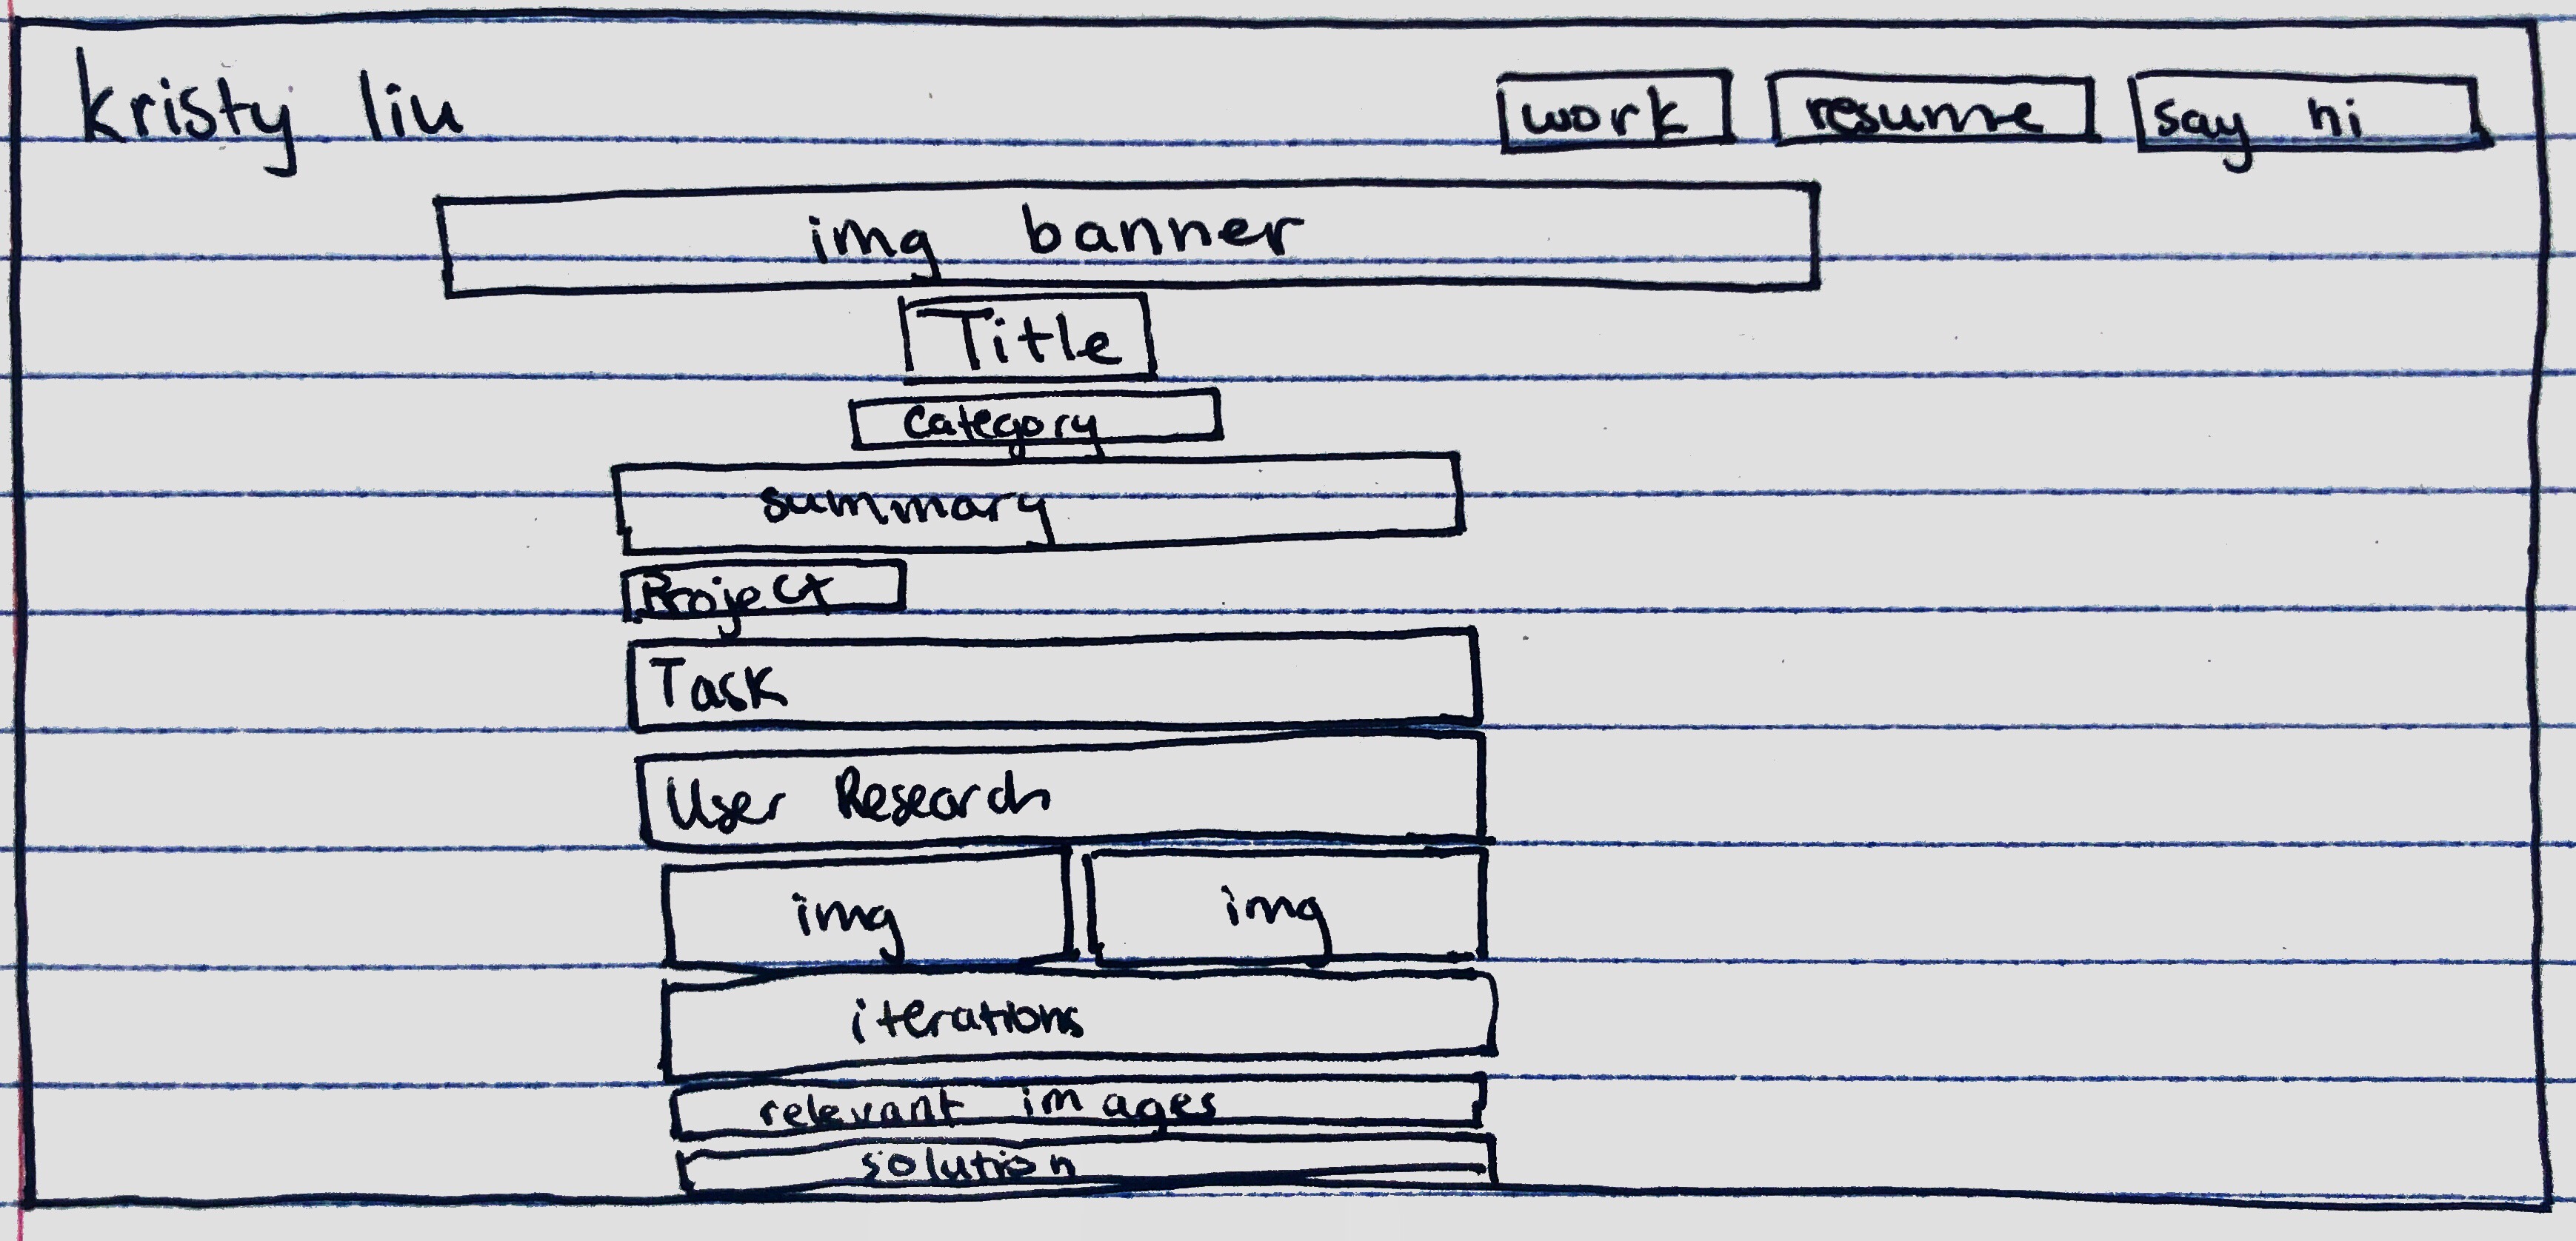 kristy liu work resume say hi
img banner
Title
Category
summary
Project
Task
User Research
img img
iterations
relevant images
solution